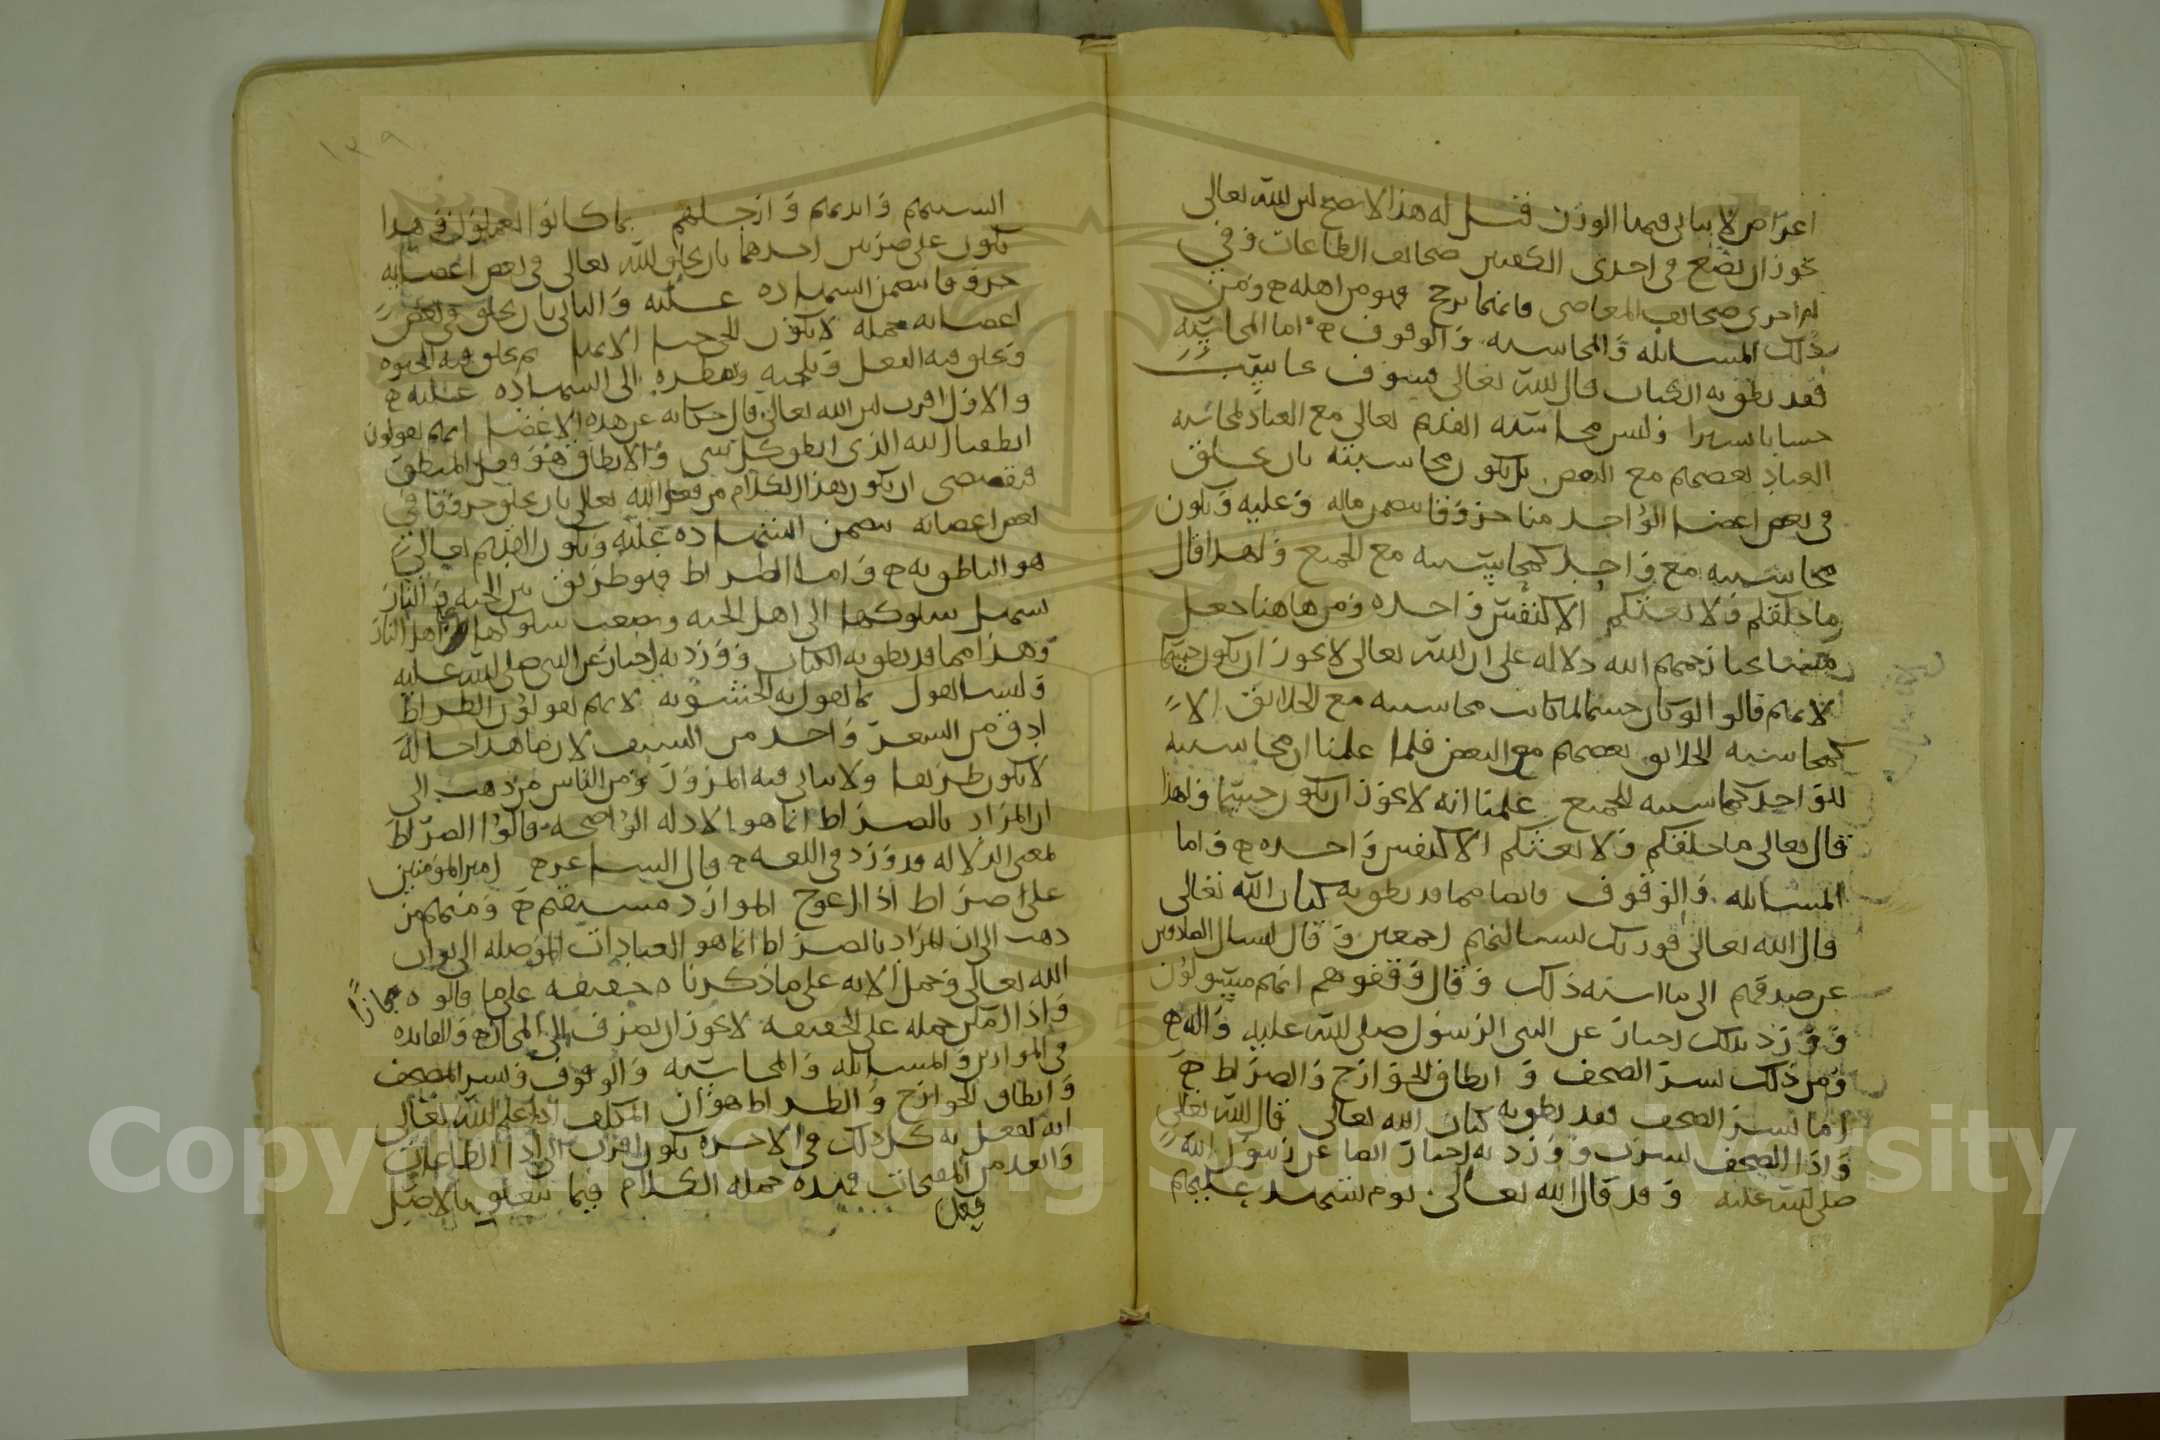 اعراض لا يتاتى فيها الوزن قيل له هذا لا يصح لان الله تعالى
يجوز ان يضع في احدى الكفتين صحائف الطاعات وفي
الاخرى صحائف المعاصي فايتهما ترجح فهو من اهله ومن
ذلك المسائله والمحاسبه والوقوف اما المحاسبه
فقد نطق به الكتاب قال الله تعالى فسوف يحاسب
حسابا يسيرا وليس محاسبه القديم تعالى مع العباد كمحاسبه
العباد بعضهم مع البعض بل يكون محاسبته بان يخلق
في بعض اعضا الواحد منا حروفا يتضمن ماله وعليه ويكون
محاسبته مع واحد كمحاسبته مع الجميع ولهذا قال
ما خلقكم ولا بعثكم الا كنفس واحده ومن هاهنا جعل
مشايخنا رحمهم الله دلاله على ان الله تعالى لا يجوز ان يكون جسما
لانهم قالوا لو كان جسما لما كانت محاسبته مع الخلائق الا
كمحاسبه الخلائق بعضهم مع البعض فلما علمنا ان محاسبته
للواحد كمحاسبته للجميع علمنا انه لا يجوز ان يكون جسما ولهذا
قال تعالى ما خلقكم ولا بعثكم الا كنفس واحده واما
المسائله والوقوف فانهما مما قد نطق به كتاب الله تعالى
قال الله تعالى فوربك لنسالنهم اجمعين وقال ليسال الصادقين
عن صدقهم الى ما اشبه ذلك وقال وقفوهم انهم مسئولون
وورد بذلك اخبار عن النبي الرسول صلى الله عليه واله
ومن ذلك نشر الصحف وانطاق الجوارح والصراط
اما نشر الصحف فقد نطق به كتاب الله تعالى قال الله تعالى
واذا الصحف نشرت وورد به اخبار ايضا عن رسول الله
صلى الله عليه وقد قال الله تعالى يوم تشهد عليهم
١٣٩
السنتهم وايديهم وارجلهم بما كانوا يعملون وهذا
يكون على ضربين احدهما بان يخلق الله تعالى في بعض اعضائه
حروفا يتضمن الشهاده عليه والثاني بان يخلق في بعض
اعضائه جمله لا يكون الحي حيا الا بها ثم يخلق فيه الحيوه
ويخلق فيه العقل ويلجيه ويضطره الى الشهاده عليه
والاول اقرب لان الله تعالى قال حكايه عن هذه الاعضا انهم يقولون
انطقنا الله الذي انطق كل شي والانطاق هو فعل المنطق
فيقتضي ان يكون هذا الكلام من فعل الله تعالى بان يخلق حروفا في
بعض اعضائه يتضمن الشهاده عليه ويكون القديم تعالى
هو الناطق به واما الصراط فهو طريق بين الجنه والنار
يسهل سلوكها الى اهل الجنه ويصعب سلوكها على اهل النار
وهذا مما قد نطق به الكتاب وورد به اخبار عن النبي صلى الله عليه
وليس نقول كما يقول به الحشويه لانهم يقولون الصراط
ادق من الشعر واحد من السيف لان ما هذا حاله
لا يكون طريقا ولا يتاتى فيه المرور ومن الناس من ذهب الى
ان المراد بالصراط انما هو الادله الواضحه قالوا الصراط
بمعنى الدلاله قد ورد في اللغه قال الشاعر امير المؤمنين
على صراط اذا اعوج الموارد مستقيم ومنهم من
ذهب الى ان المراد بالصراط انما هو العبادات الموصله الى ثواب
الله تعالى وحمل الايه على ما ذكرنا حقيقه على ما قالوه مجازا
واذا امكن حمله على الحقيقه لا يجوز ان يصرف الى المجاز والفائده
في الموازين والمسائله والمحاسبه والوقوف ونشر الصحف
وانطاق الجوارح والصراط هو ان المكلف اذا علم ان الله تعالى
انه يفعل به كل ذلك في الاخره يكون اقرب الى اداء الطاعات
وابعد من المقبحات فهذه جمله الكلام فيما يتعلق بالاصل
فصل
Copyright © King Saud University